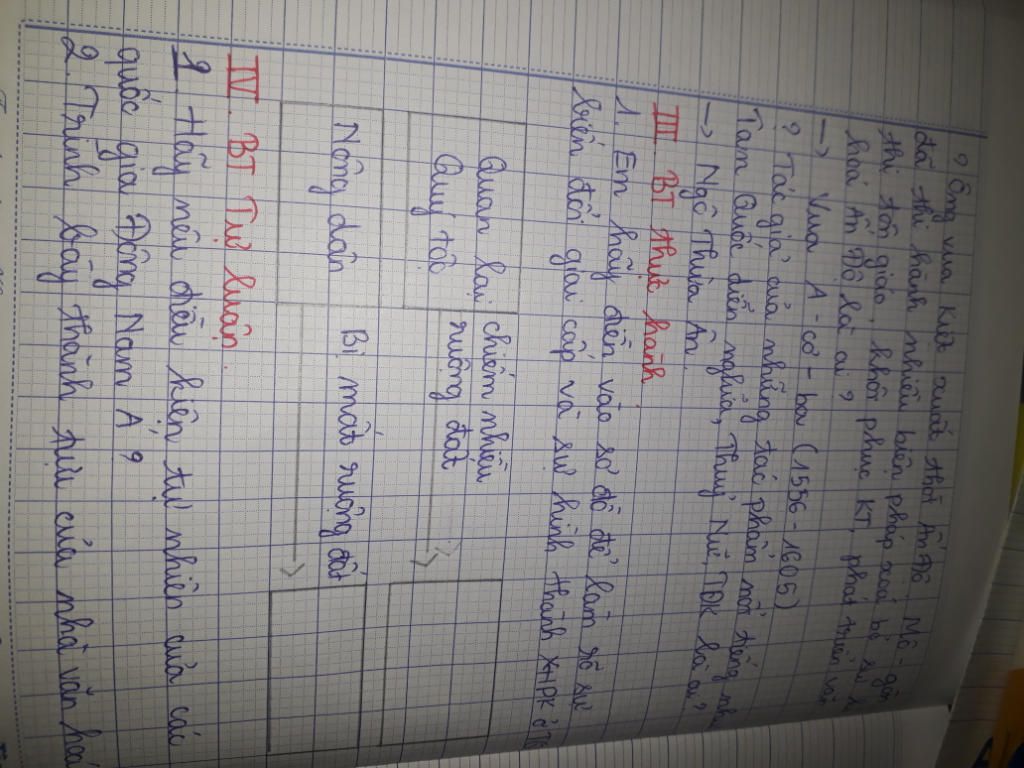 ? Ông vua kiệt xuất thời Ấn Độ Mô-gôn
đã thi hành nhiều biện pháp xoá bỏ sự kì
thị tôn giáo, khôi phục KT, phát triển văn
hoá Ấn Độ là ai?
→ Vua A-cơ-ba (1556-1605)
? Tác giả của những tác phẩm nổi tiếng như
Tam Quốc diễn nghĩa, Thuỷ Hử, TDK là ai?
→ Ngô Thừa Ân
III. BT thực hành
1. Em hãy điền vào sơ đồ để làm rõ sự
biến đổi giai cấp và sự hình thành XHPK ở TQ
Quan lại
Quý tộc
chiếm nhiều
ruộng đất
Nông dân
Bị mất ruộng đất
IV. BT Tự luận
1 Hãy nêu điều kiện tự nhiên của các
quốc gia Đông Nam Á?
2. Trình bày thành tựu của nhà văn hoá